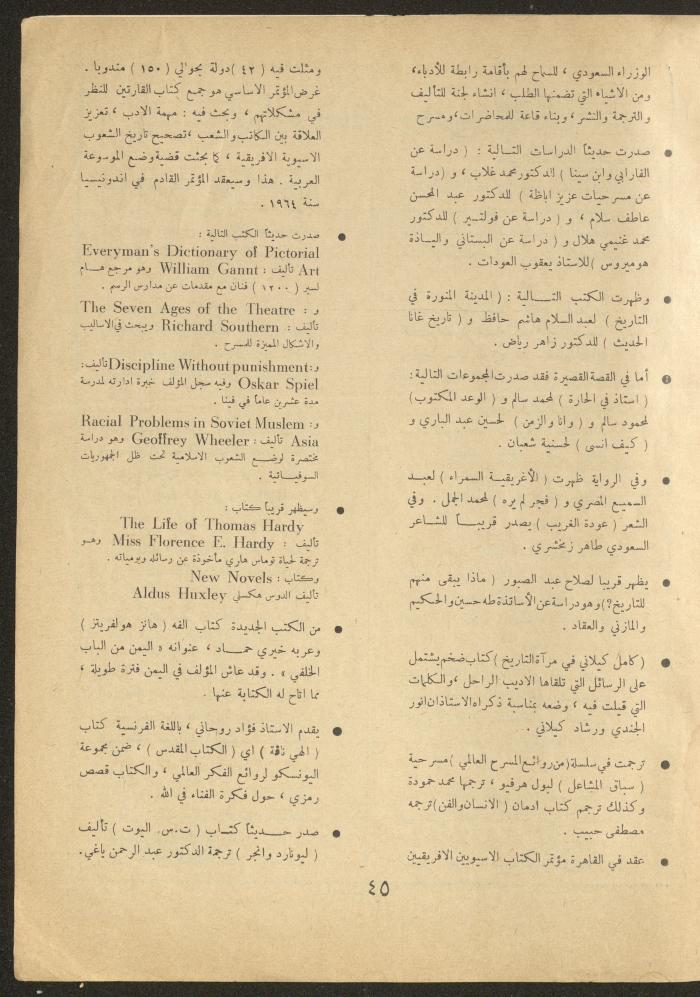 الوزراء السعودي ، للسماح لهم بأقامة رابطة للأدباء،
ومن الاشياء التي تضمنها الطلب ، انشاء لجنة للتأليف
والترجمة والنشر ، وبناء قاعة للمحاضرات ،ومسرح
● صدرت حديثاً الدراسات التـالية : ( دراسة عن
الفارابي وابن سينا ) للدكتور محمد غلاب ، و (دراسة
عن مسرحيات عزيز اباظة ) للدكتور عبد المحسن
عاطف سلام ، و ( دراسة عن فولتـير ) للدكتور
محمد غنيمي هلال و ( دراسة عن البستاني واليـاذة
هوميروس )للاستاذ يعقوب العودات .
● وظهرت الكتب التـــالية : ( المدينة المنورة في
التاريخ ) لعبد السلام هاشم حافظ و ( تاريخ غانا
الحديث ) للدكتور زاهر رياض .
● أما في القصة القصيرة فقد صدرت المجموعات التالية :
( استاذ في الحارة ) لمحمد سالم و ( الوعد المكتوب)
لمحمود سالم و ( وانا والزمن ) لحسين عبد الباري و
( كيف انسى ) لحسنية شعبان .
● وفي الرواية ظهرت ( الأغريقيـة السمراء ) لعبـد
السميـع المصري و ( فجر لم يره ) لمحمد الجمل . وفي
الشعر ( عودة الغريب ) يصدر قريبـــاً للشـاعر
السعودي طاهر زمخشري .
● يظهر قريبا لصلاح عبد الصبور ( ماذا يبقى منهم
للتاريخ؟) وهو دراسة عن الأساتذة طه حسين والحـكيم
والمازني والعقاد .
● ( كامل كيلاني في مرآة التاريخ ) كتاب ضخم يشتمل
على الرسائل التي تلقاها الاديب الراحل ،والكلمات
التي قيلت فيه ، وضعه بمناسبة ذكراه الاستاذان انور
الجندي ورشاد كيلاني .
● ترجمت في سلسلة (من روائـع المسرح العالمي ) مسرحية
( سباق المشاعل ) ليول هرفيو ، ترجمها محمد حمودة
وكذلك ترجم كتاب ادمان ( الانسان والفن) ترجمه
مصطفى حبيب .
● عقد في القاهرة مؤتمر الكتاب الاسيويين الافريقيين
ومثلت فيه ( ٤٢ )دولة بحوالي ( ١٥٠ ) مندوبا .
غرض المؤتمر الاساسي هو جمع كتاب القارتين للنظر
في مشكلاتهم ، وبحث فيه : مهمة الادب ، تعزيز
العلاقة بين الكاتب والشعب ،تصحيح تاريخ الشعوب
الاسيوية الافريقية ، كما بحثت قضية وضع الموسوعة
العربية . هذا وسيعقد المؤتمر القادم في اندونيسيا
سنة ١٩٦٤ .
● صدرت حديثاً الكتب التالية :
Everyman's Dictionary of Pictorial
Art تأليف : William Gannt وهو مرجع هـــام
لسير ( ١٢٠٠ ) فنان مع مقدمات عن مدارس الرسم .
و : The Seven Ages of the Theatre
تأليف : Richard Southern ويبحث في الاساليب
والاشكال المميزة للمسرح .
و: Discipline Without punishment تأليف:
Oskar Spiel وفيه سجل المؤلف خبرة ادارته لمدرسة
مدة عشرين عاماً في فينا .
و: Racial Problems in Soviet Muslem
Asia تأليف : Geoffrey Wheeler وهو دراسة
مختصرة لوضــع الشعوب الاسلامية تحت ظل الجمهوريات
السوفيــاتية .
● وسيظهر قريباً كتاب :
The Life of Thomas Hardy
تأليف : Miss Florence E. Hardy وهـو
ترجمة لحياة توماس هاري مأخوذة عن رسائله ويومياته .
وكتاب : New Novels
تأليف الدوس هكسلي Aldus Huxley
● من الكتب الجديدة كتاب الفه ( هانز هولفريتز )
وعربه خيري حمــاد ، عنوانه « اليمن من الباب
الخلفي » . وقد عاش المؤلف في اليمن فترة طويلة ،
مما اتاح له الكتابة عنها .
● يقدم الاستاذ فؤاد روحاني ، باللغة الفرنسية كتاب
( الهي نامة ) اي ( الكتاب المقدس ) ، ضمن مجموعة
اليونسكو لروائع الفكر العالمي ، والكتاب قصص
رمزي ، حول فكرة الفناء في الله .
● صدر حـــديثاً كتــاب ( ت.س. اليوت ) تأليف
( ليونارد وانجر ) ترجمة الدكتور عبد الرحمن ياغي.
٤٥